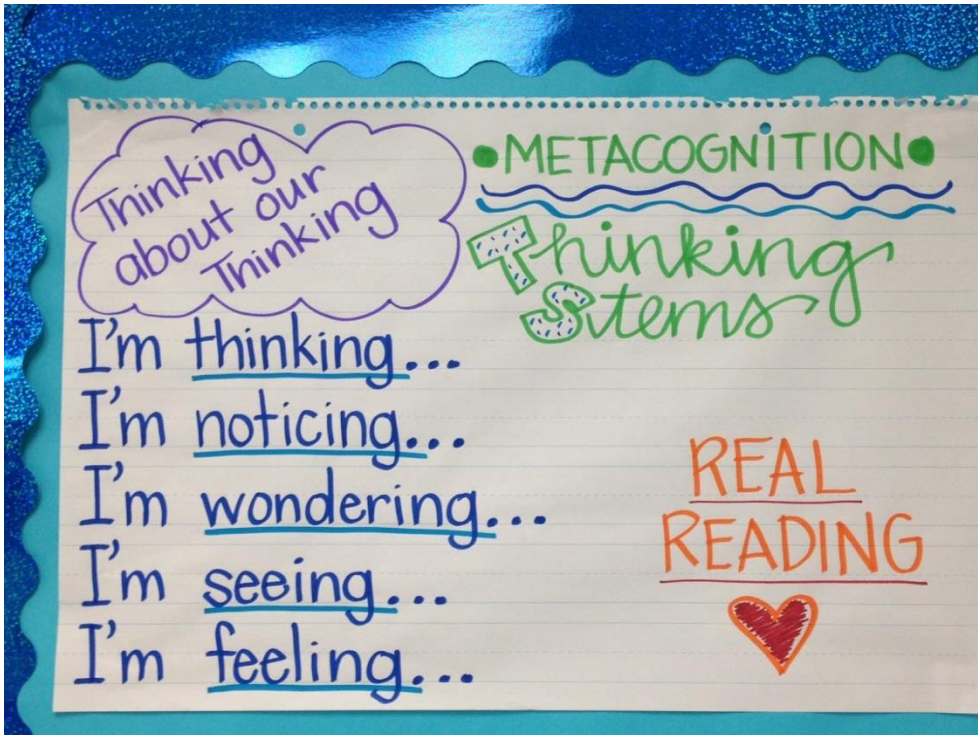 Thinking
about our
Thinking
•METACOGNITION•
Thinking
Stems
I'm thinking...
I'm noticing...
I'm wondering...
I'm seeing...
I'm feeling...
REAL
READING